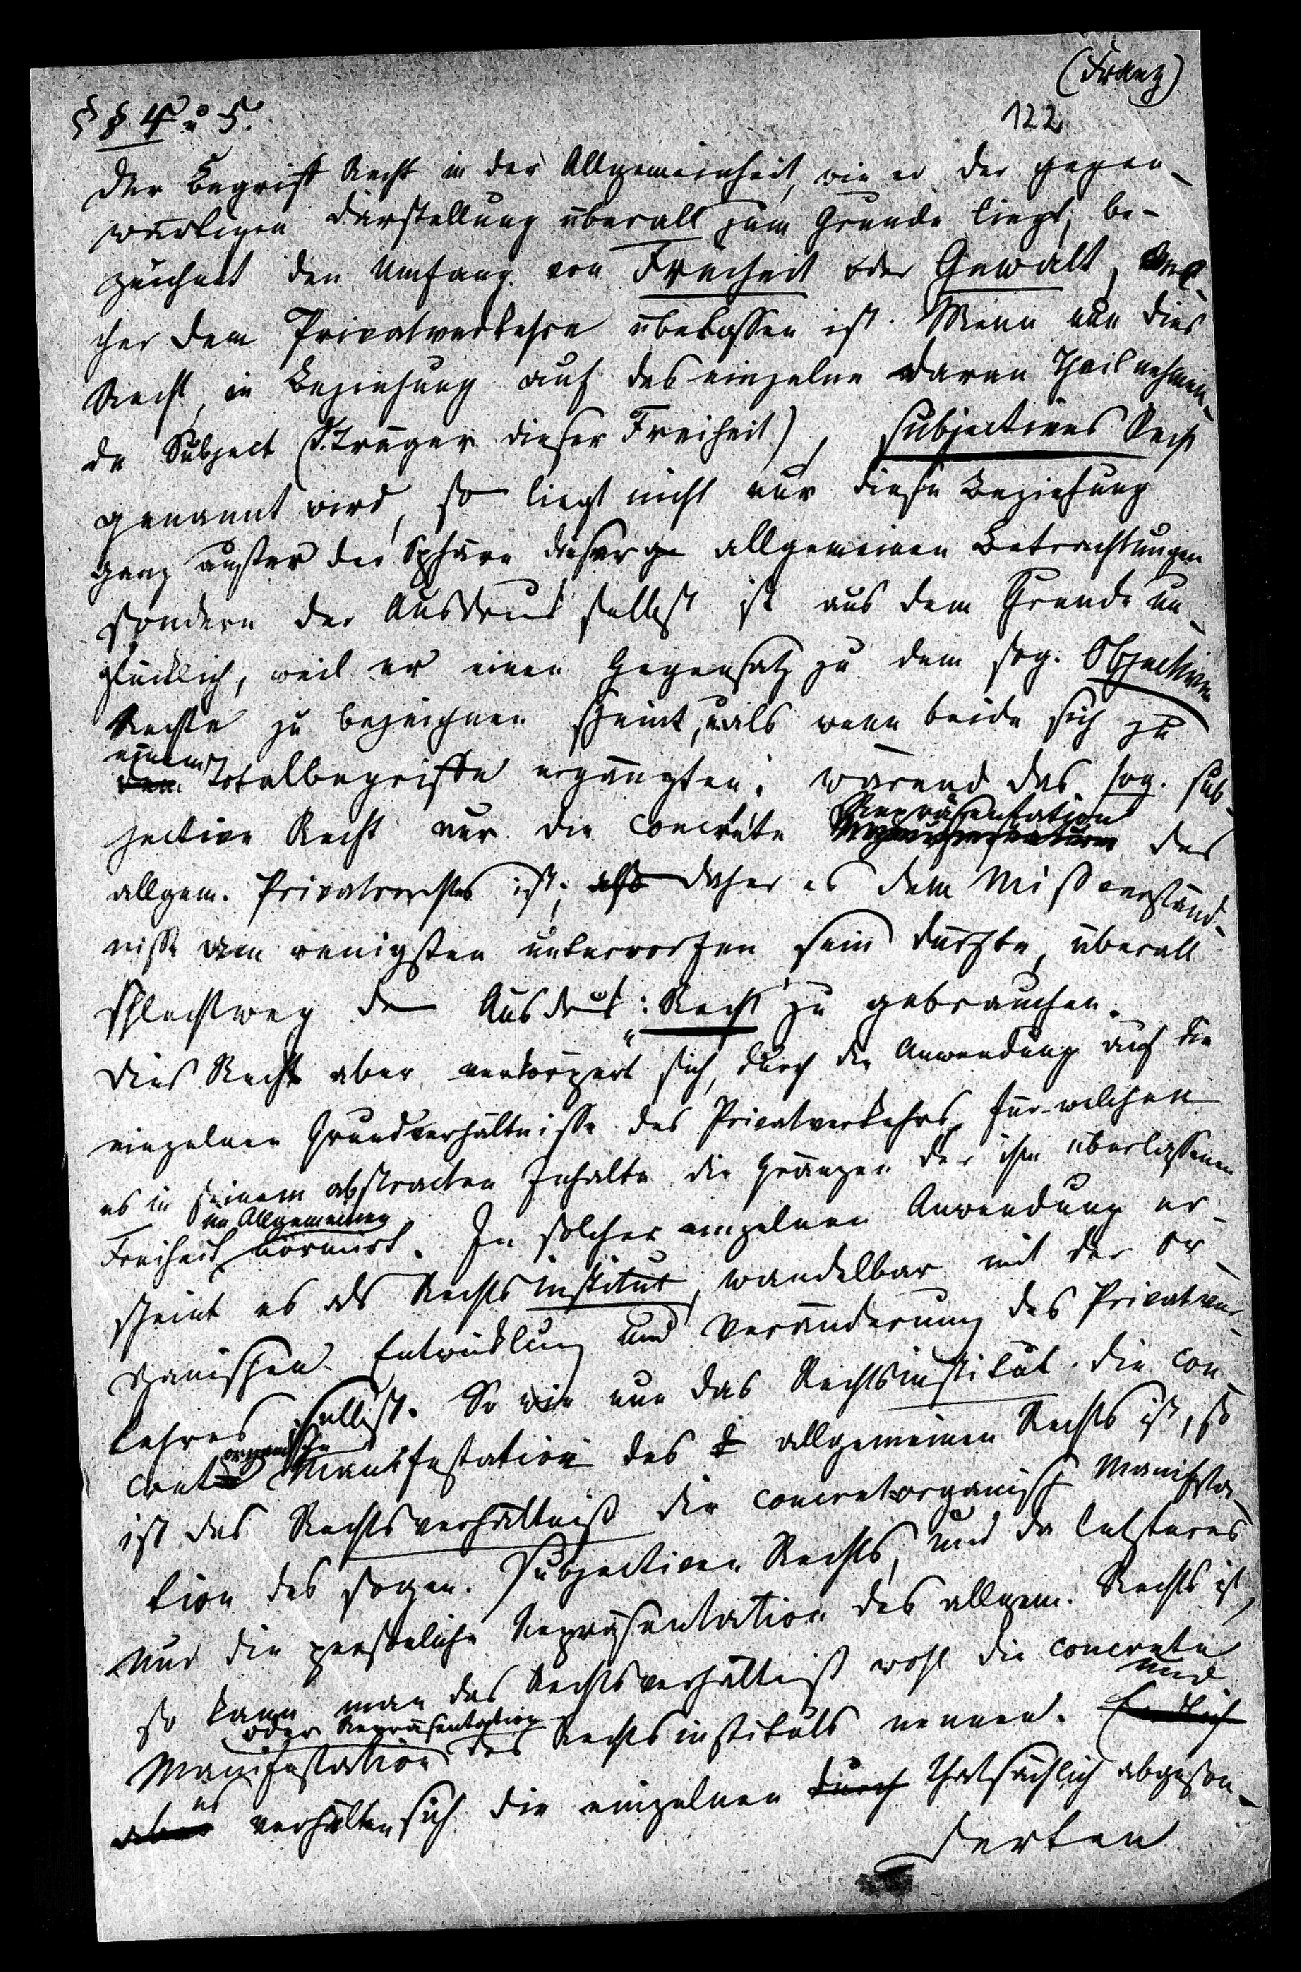 (Franz)
§ § 4 u 5.
122
Der Begriff Recht in der Allgemeinheit, wie er der gegen-
wärtigen Darstellung überall zum Grunde liegt, be-
zeichnet den Umfang von Freiheit oder Gewalt, wel-
cher dem Privatverkehre überlassen ist. Wenn nun dies
Recht, in Beziehung auf das einzelne daran Theil nehmen-
de Subject (d. Träger dieser Freiheit), subjectives Recht
genannt wird, so liegt nicht nur diese Beziehung
ganz außer der Sphäre dieser allgemeinen Betrachtungen
sondern der Ausdruck selbst ist aus dem Grunde un-
glücklich, weil er einen Gegensatz zu dem sog. Objectiven
Rechte zu bezeichnen scheint, als wenn beide sich zu
einem
den Totalbegriffe ergänzten; wärend das sog. sub-
Repräsentation
jective Recht nur die concrete des
allgem. Privatrechtes ist; also daher es dem Mißverständ-
nisse am wenigsten unterworfen sein dürfte, überall
schlechtweg den Ausdruck: „Recht" zu gebrauchen.
Dies Recht aber verkörpert sich, durch die Anwendung auf die
einzelnen Grundverhältnisse des Privatverkehrs, für welchen
es in seinem abstracten Inhalte die Gränzen der ihm überlassenen
im Allgemeinen
Freiheit normirt. In solcher einzelnen Anwendung er-
scheint es als Rechtsinstitut, wandelbar mit der or-
ganischen Entwicklung und Veränderung des Privatver-
kehres selbst. So wie nun das Rechtsinstitut die con-
organische
cret Manifestation des allgemeinen Rechts ist, so
ist das Rechtsverhältniß die concretorganisch Manifesta-
tion des sogen. subjectiven Rechts, und da letzteres
nur die persönliche Repräsentation des allgem. Rechts ist,
so kann man das Rechtsverhältniß wohl die concrete
oder Repräsentation
und
Manifestation des Rechtsinstituts nennen. Endlich
es
aber verhalten sich die einzelnen durch thatsächlich abgeson-
derten